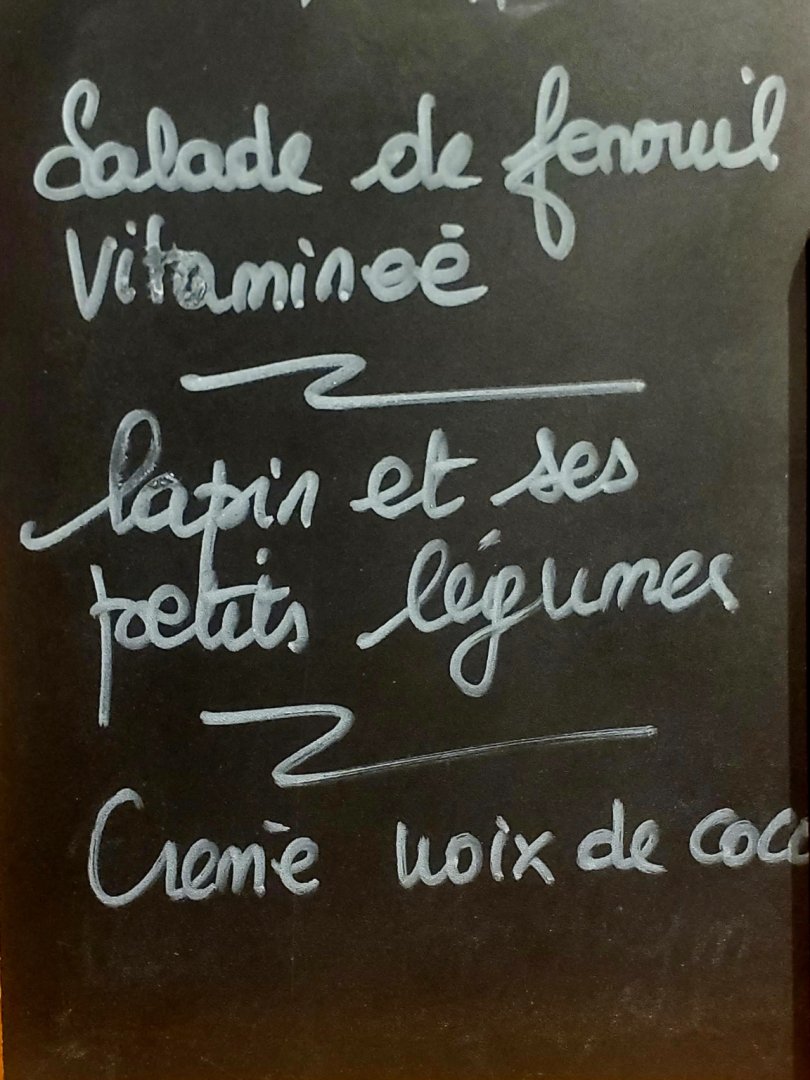 Salade de fenouil
Vitamineé
lapin et ses
petits légumes
Cremè noix de coco